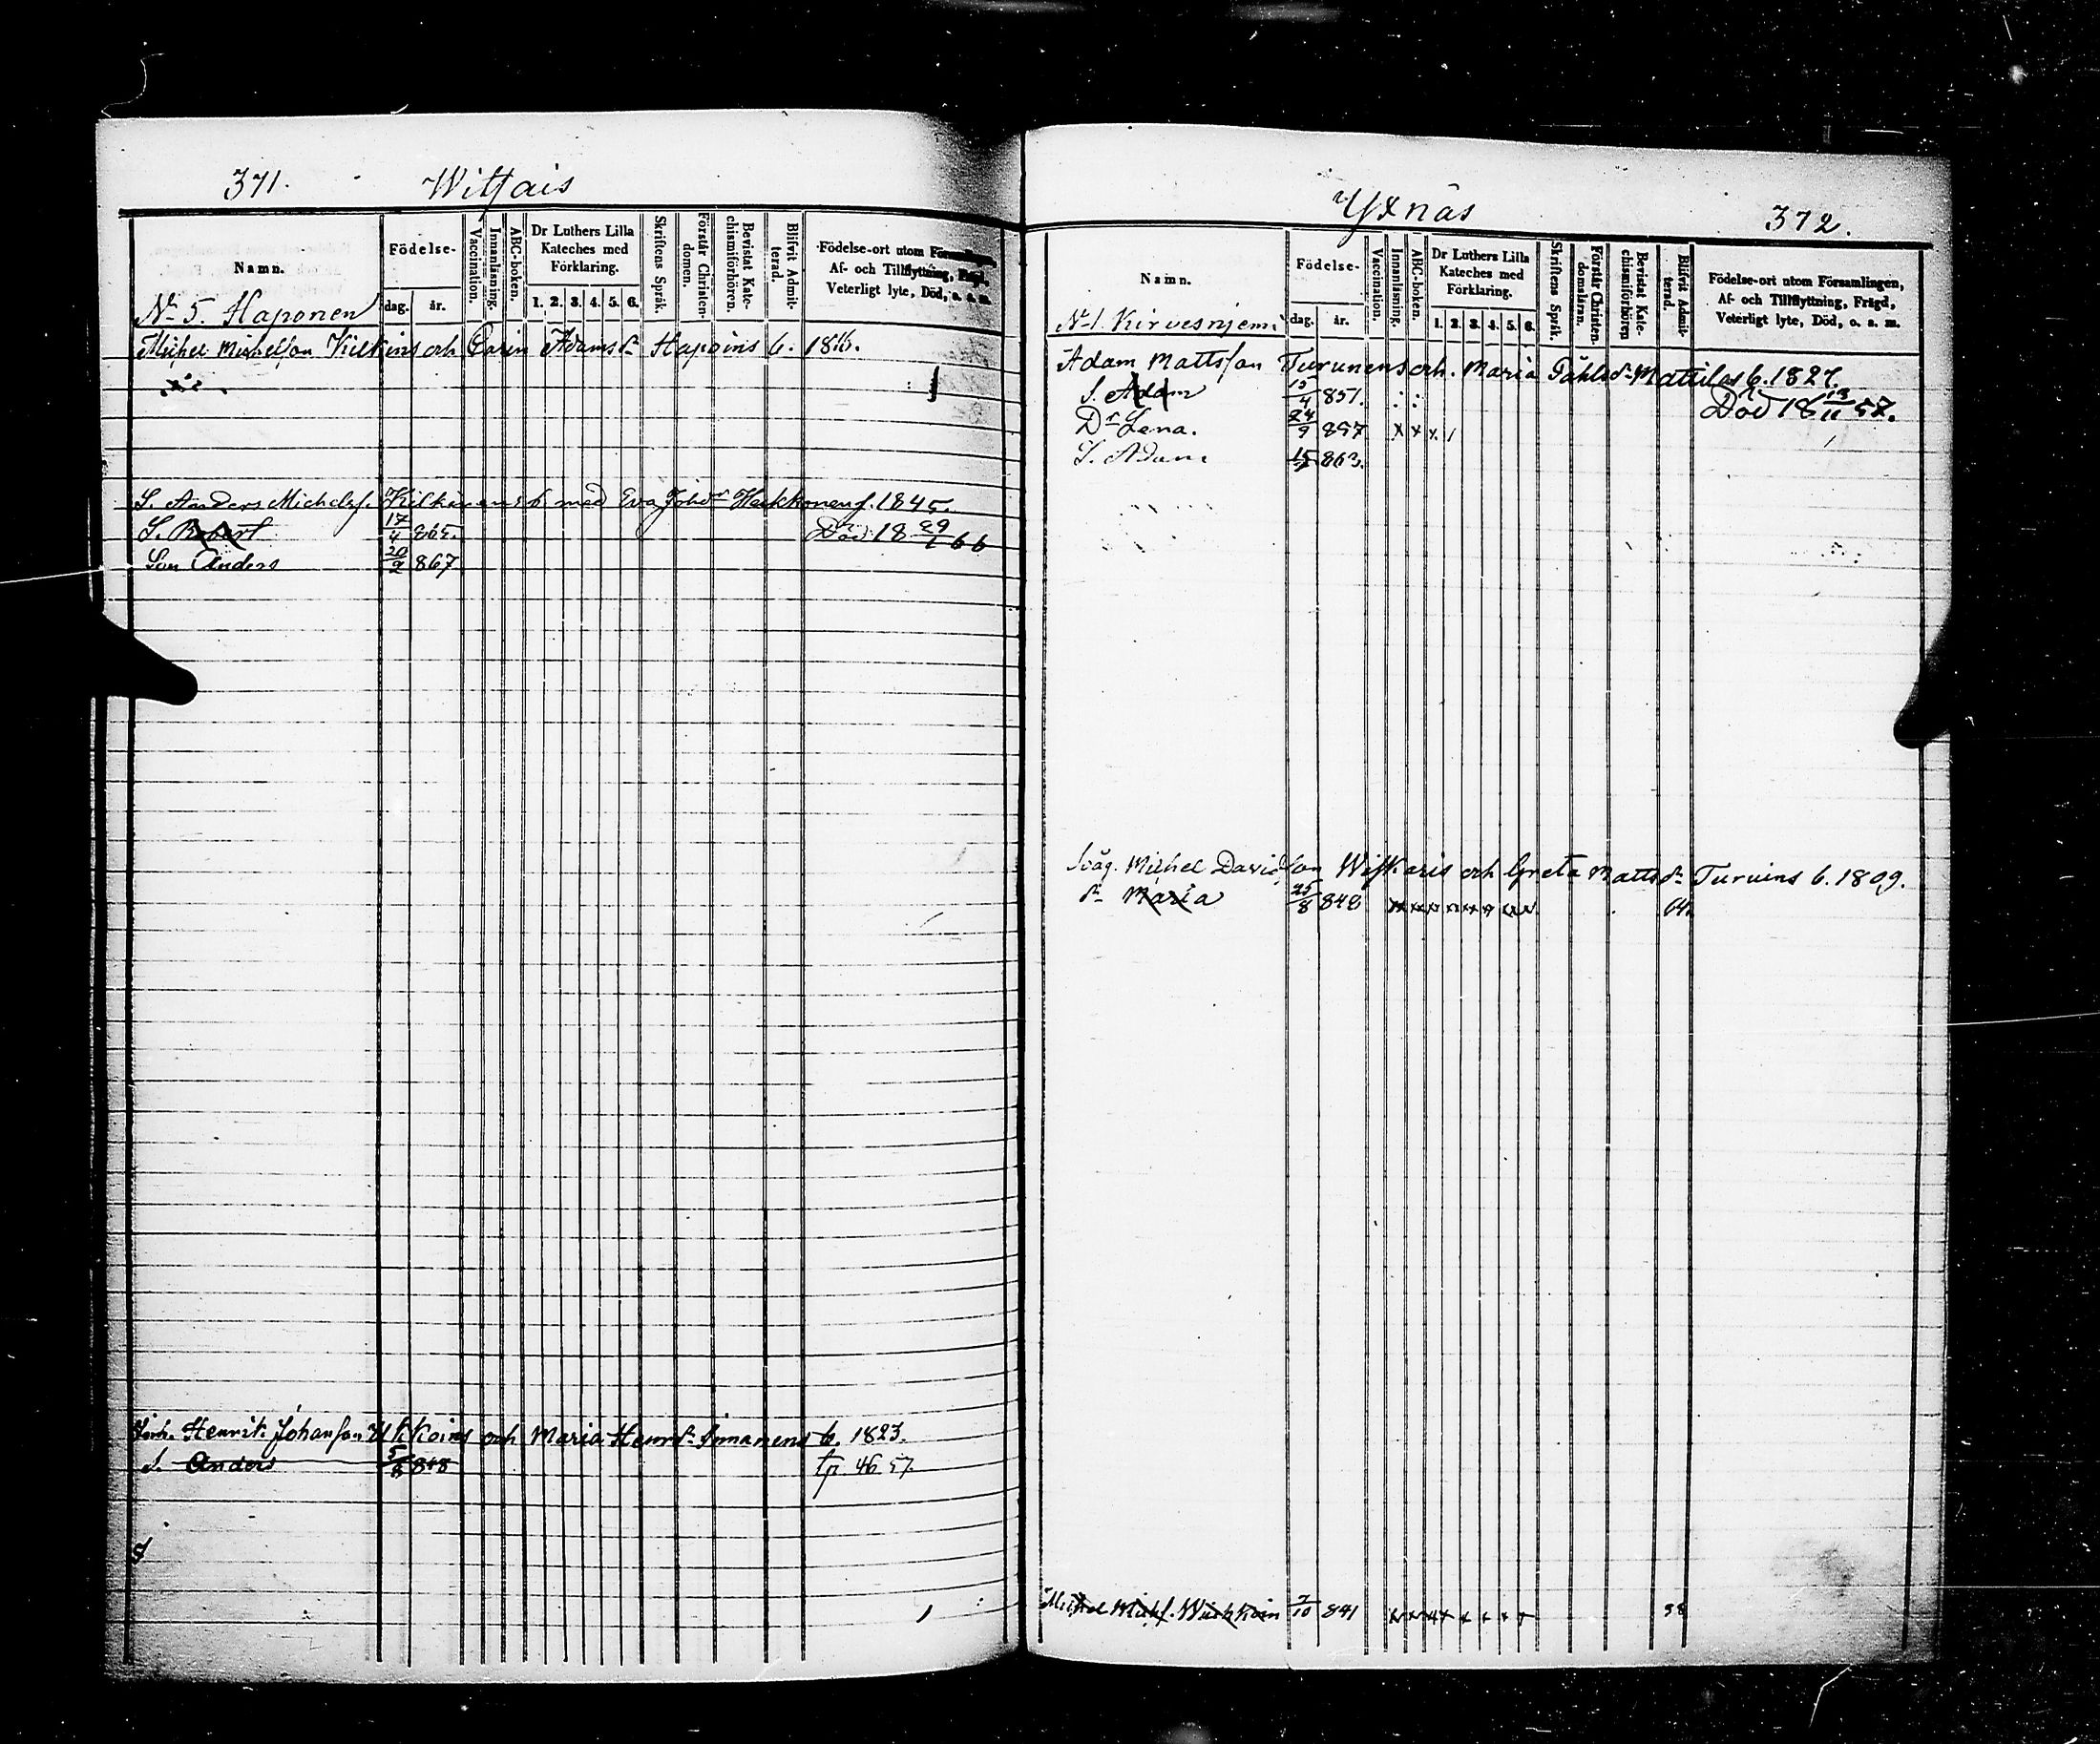 371. Wittais
Namn.
Födelse-
dag. år.
Vaccination.
Innanläsning.
ABC-boken.
Dr Luthers Lilla Kateches med Förklaring.
1. 2. 3. 4. 5. 6.
Skriftens Språk.
Förstår Christendomen.
Bevistat Katechismiförhören.
Blifvit Admitterad.
Födelse-ort utom Församlingen,
Af- och Tillflyttning, Frägd,
Veterligt lyte, Död, o. s. m.
No 5. Haponen
Michel Michelson Kilkins och Carin Adamsdr Hapoins b.
S. Anders Michelss. Kilkinens b med Eva Johdr Hackkonen f. 1845.
S. Robert 17/4 865. Död 18 29/1 66
Son Anders 20/2 867
Inh. Henrik Johanson Ukkoins och Maria Henrdr Immonens b. 1823.
S. Anders 848 tp. 46 57.
Yxnäs 372.
Namn.
Födelse-
dag. år.
Vaccination.
Innanläsning.
ABC-boken.
Dr Luthers Lilla Kateches med Förklaring.
1. 2. 3. 4. 5. 6.
Skriftens Språk.
Förstår Christendomsläran.
Bevistat Katechismiförhören
Blifvit Admitterad.
Födelse-ort utom Församlingen,
Af- och Tillflyttning, Frägd,
Veterligt lyte, Död, o. s. m.
No 1. Kirvesnjemi
Adam Mattsson Turunens och Maria Påhlsdr Mattilas b. 1827.
S. Adam 15/4 851. Död 18 13/11 57.
Dr Lena. 24/9 857 x x x /
S. Adam 863.
Svåg. Michel Davidson Wiskaris och Greta Mattsdr Turuins b. 1809.
dr Maria 25/8 848 64.
Michel Mich.s. 7/10 841 58